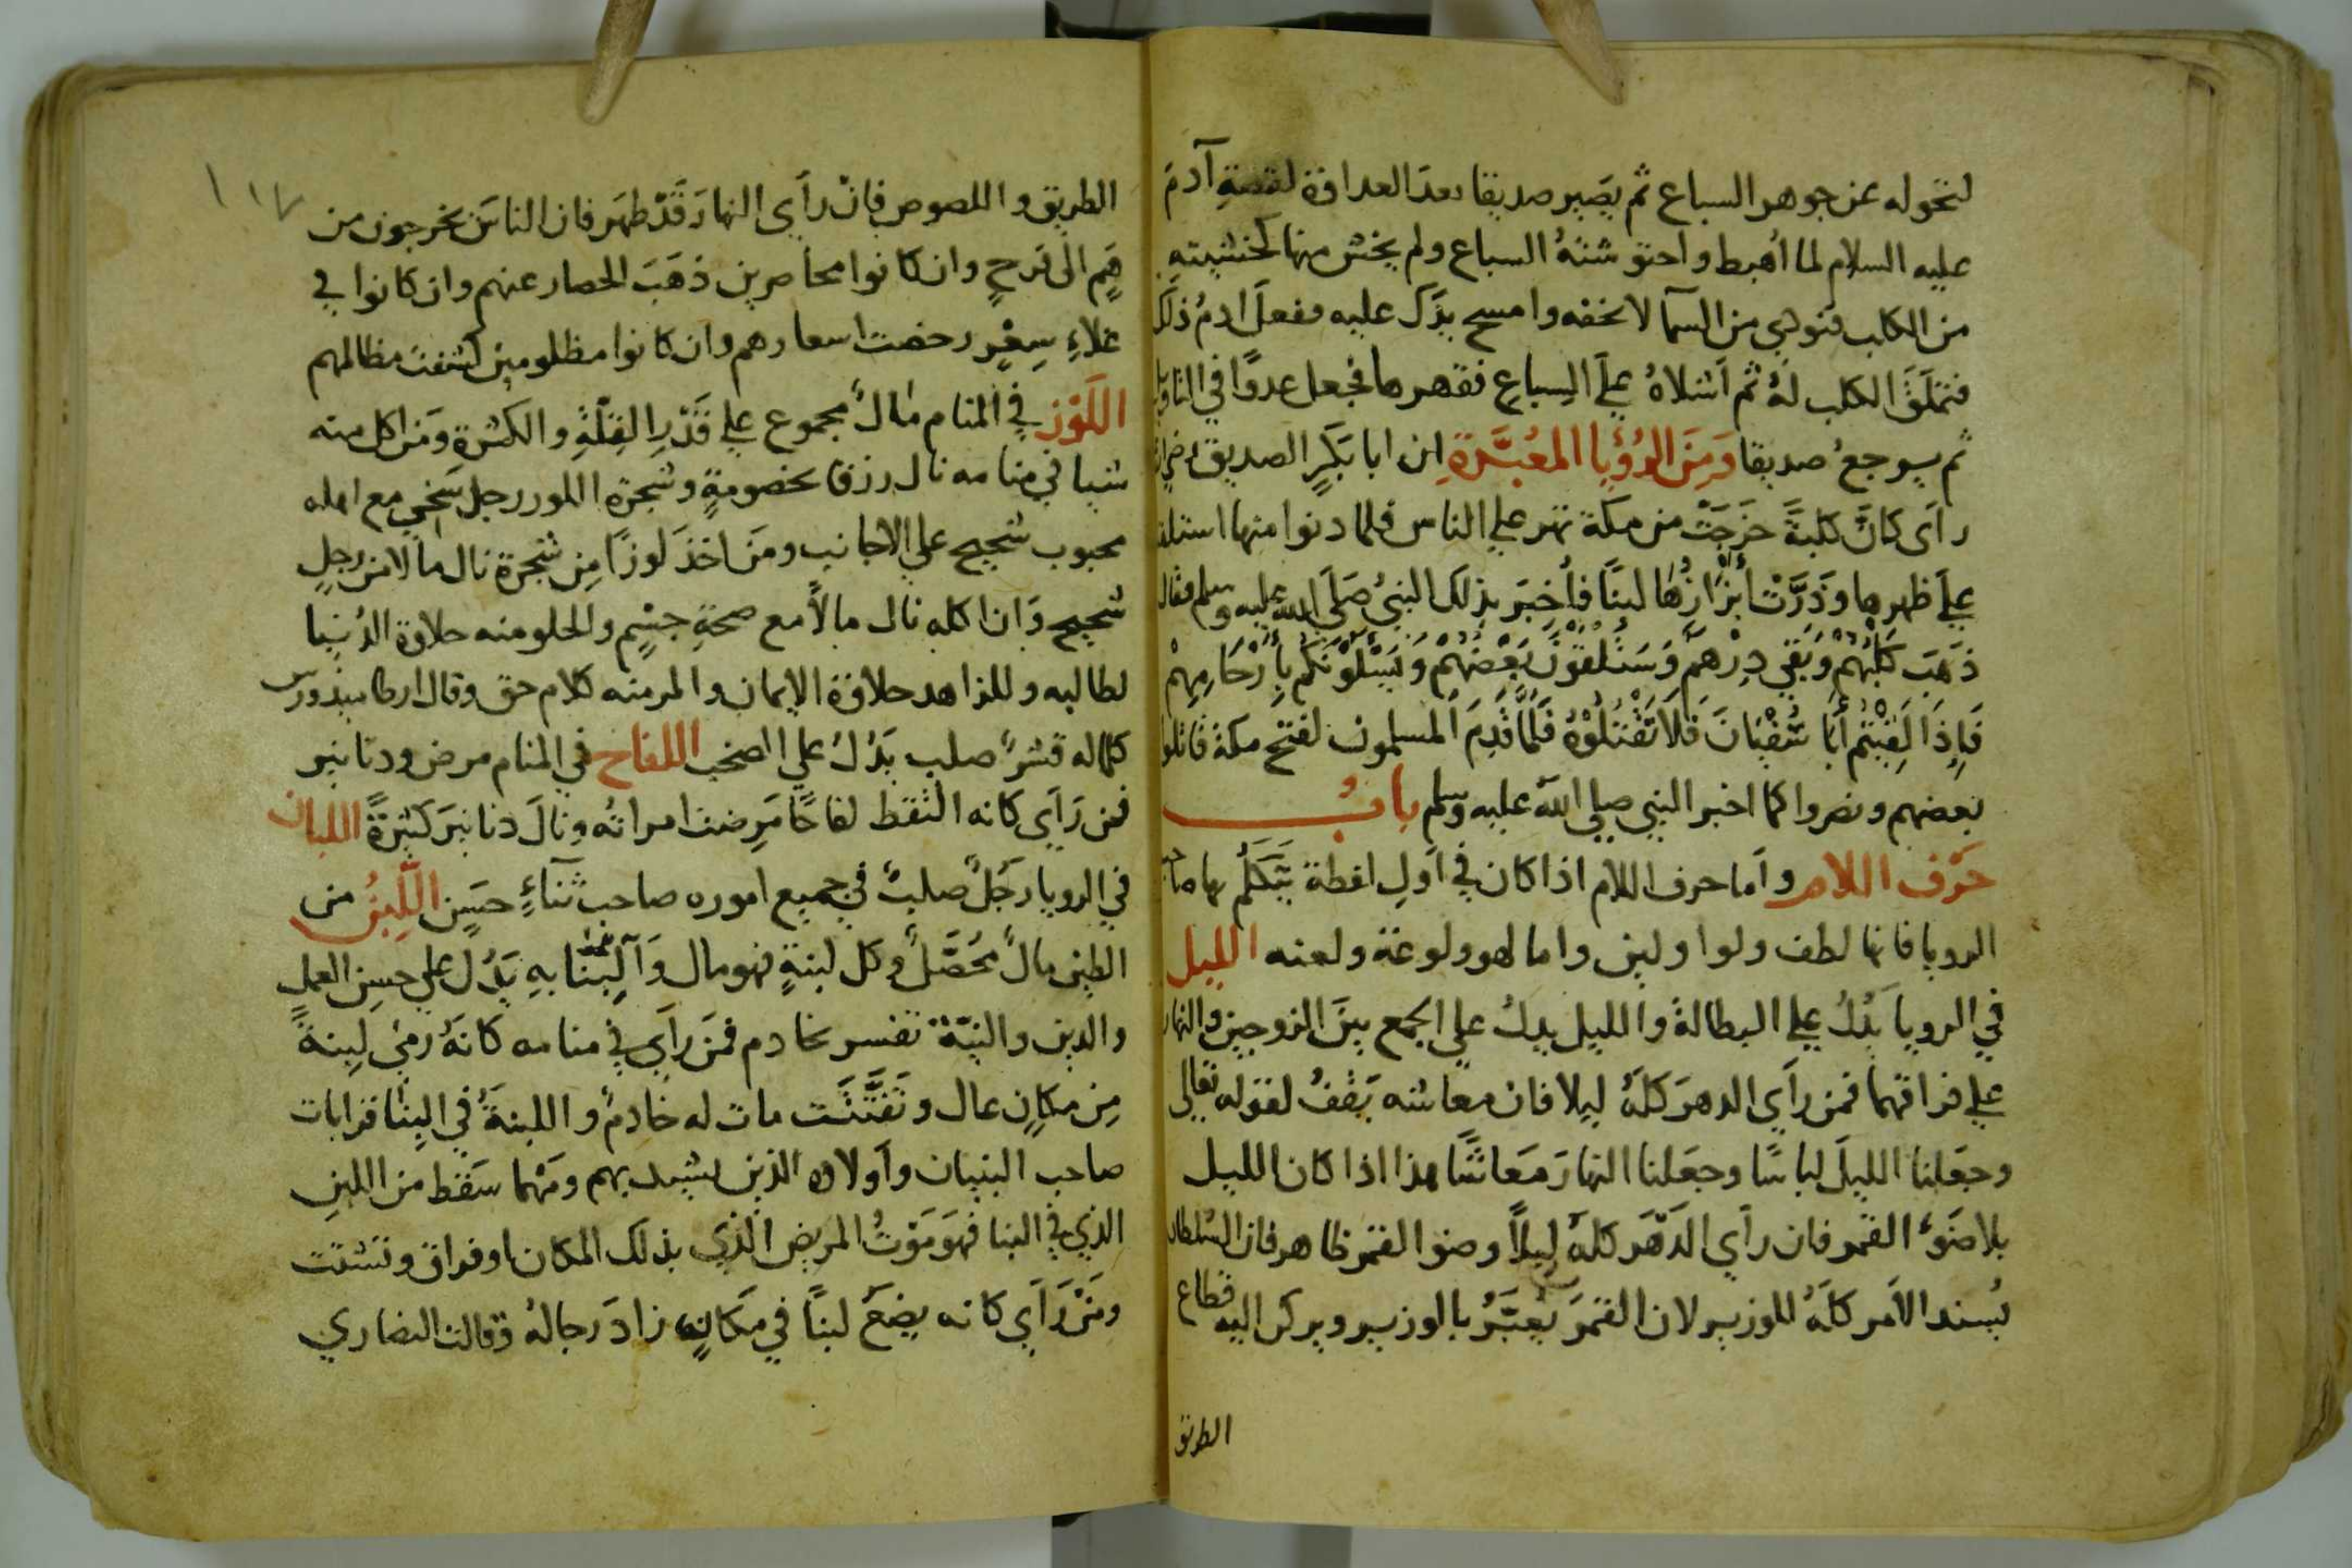 لتحوله عن جوهر السباع ثم يصير صديقا بعد العداوة لقصة آدم
عليه السلام لما أهبط واحتوشته السباع ولم يخش منها كخشيته
من الكلب فنودي من السما لا تخفه وامسح بيدك عليه ففعل ادم ذلك
فتملق الكلب له ثم اشلاه على السباع فقهرها فجعل عدوا في التاويل
ثم يرجع صديقا ومن الرؤيا المعبرة ان ابا بكر الصديق رضي الله
رأى كان كلبة خرجت من مكة تهر على الناس فلما دنوا منها استلقت
على ظهرها وذرت أبزازها لبنا فأخبر بذلك النبي صلى الله عليه وسلم فقال
ذهب كلبهم وبقي درهم وستلقون بعضهم ويسئلونكم بأرحامهم
فإذا لقيتم أبا سفيان فلا تقتلوه فلما قدم المسلمون لفتح مكة قاتلوا
بعضهم ونصروا كما اخبر النبي صلى الله عليه وسلم باب
حرف اللام وأما حرف اللام اذا كان في أول لفظة يتكلم بها صاحب
الرويا فانها لطف ولوا ولين واما لهو ولوعة ولعنه الليل
في الرويا يدل على البطالة والليل يدل على الجمع بين الزوجين والنهار
على فراقهما فمن رأي الدهر كله ليلا فان معاشه يقف لقوله تعالى
وجعلنا الليل لباسا وجعلنا النهار معاشا هذا اذا كان الليل
بلا ضوء القمر فان رأي الدهر كله ليلا وضو القمر ظاهر فان السلطان
يسند الأمر كله للوزير لان القمر يعبر بالوزير ويركن اليه قطاع
الطريق
١١٧
الطريق واللصوص فان رأي النهار قد ظهر فان الناس يخرجون من
هم الى فرح وان كانوا محاصرين ذهب الحصار عنهم وان كانوا في
غلاء سعر رخصت اسعارهم وان كانوا مظلومين كشفت مظالمهم
اللوز في المنام مال مجموع على قدر القلة والكثرة ومن اكل منه
شيا في منامه نال رزق بخصومة وشجرة اللوز رجل سخي مع اهله
محبوب شحيح على الاجانب ومن اخذ لوزا من شجرة نال مالا من رجل
شحيح وان اكله نال مالا مع صحة جسم والحلو منه حلاوة الدنيا
لطالبه وللزاهد حلاوة الايمان والمر منه كلام حق وقال ارطاميدورس
كلما له قشر صلب يدل على الصخب اللفاح في المنام مرض ودنانير
فمن رأي كانه التقط لفاحا مرضت امراته ونال دنانير كثيرة اللبان
في الرويا رجل صلب في جميع اموره صاحب ثناء حسن اللبن من
الطين مال محصل وكل لبنة فهو مال والبنا به يدل على حسن العمل
والدين والنية تفسر بخادم فمن رأي في منامه كانه رمى لبنة
من مكان عال وتفتتت مات له خادم واللبنة في البنا قرابات
صاحب البنيان واولاده الذين يشيد بهم ومهما سقط من اللبن
الذي في البنا فهو موت المريض الذي بذلك المكان او فراق وتشتت
ومن رأي كانه يضع لبنا في مكانه زاد رجاله وقالت النصاري